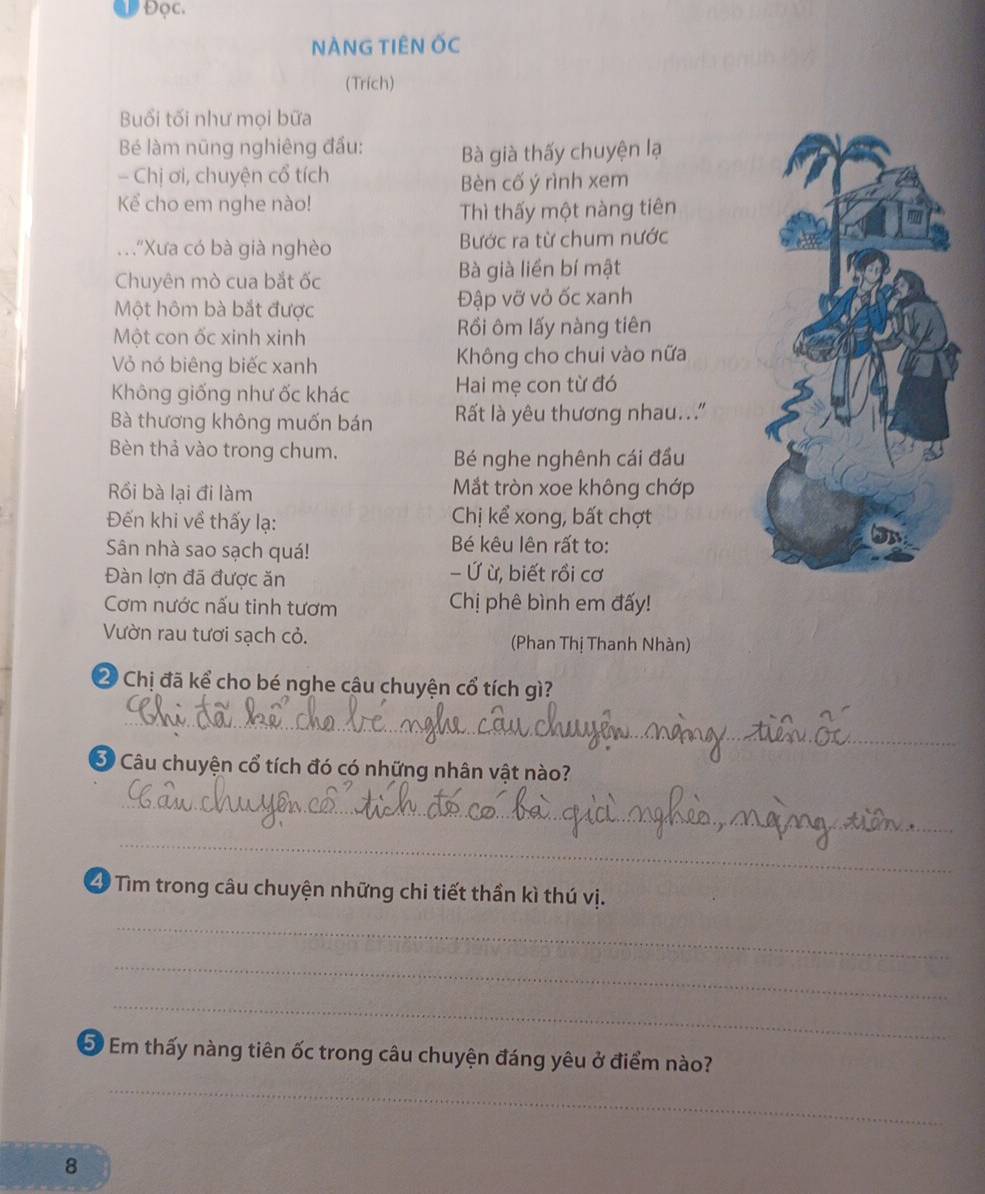 1 Đọc.
NÀNG TIÊN ỐC
(Trích)
Buổi tối như mọi bữa
Bé làm nũng nghiêng đầu:
– Chị ơi, chuyện cổ tích
Kể cho em nghe nào!
..."Xưa có bà già nghèo
Chuyên mò cua bắt ốc
Một hôm bà bắt được
Một con ốc xinh xinh
Vỏ nó biêng biếc xanh
Không giống như ốc khác
Bà thương không muốn bán
Bèn thả vào trong chum.
Rồi bà lại đi làm
Đến khi về thấy lạ:
Sân nhà sao sạch quá!
Đàn lợn đã được ăn
Cơm nước nấu tinh tươm
Vườn rau tươi sạch cỏ.
Bà già thấy chuyện lạ
Bèn cố ý rình xem
Thì thấy một nàng tiên
Bước ra từ chum nước
Bà già liền bí mật
Đập vỡ vỏ ốc xanh
Rồi ôm lấy nàng tiên
Không cho chui vào nữa
Hai mẹ con từ đó
Rất là yêu thương nhau..."
Bé nghe nghênh cái đầu
Mắt tròn xoe không chớp
Chị kể xong, bất chợt
Bé kêu lên rất to:
– Ứ ừ, biết rồi cơ
Chị phê bình em đấy!
(Phan Thị Thanh Nhàn)
2 Chị đã kể cho bé nghe câu chuyện cổ tích gì?
Chị đã kể cho bé nghe câu chuyện nàng tiên ốc
3 Câu chuyện cổ tích đó có những nhân vật nào?
Câu chuyện cổ tích đó có bà già nghèo, nàng tiên.
4 Tìm trong câu chuyện những chi tiết thần kì thú vị.
5 Em thấy nàng tiên ốc trong câu chuyện đáng yêu ở điểm nào?
8